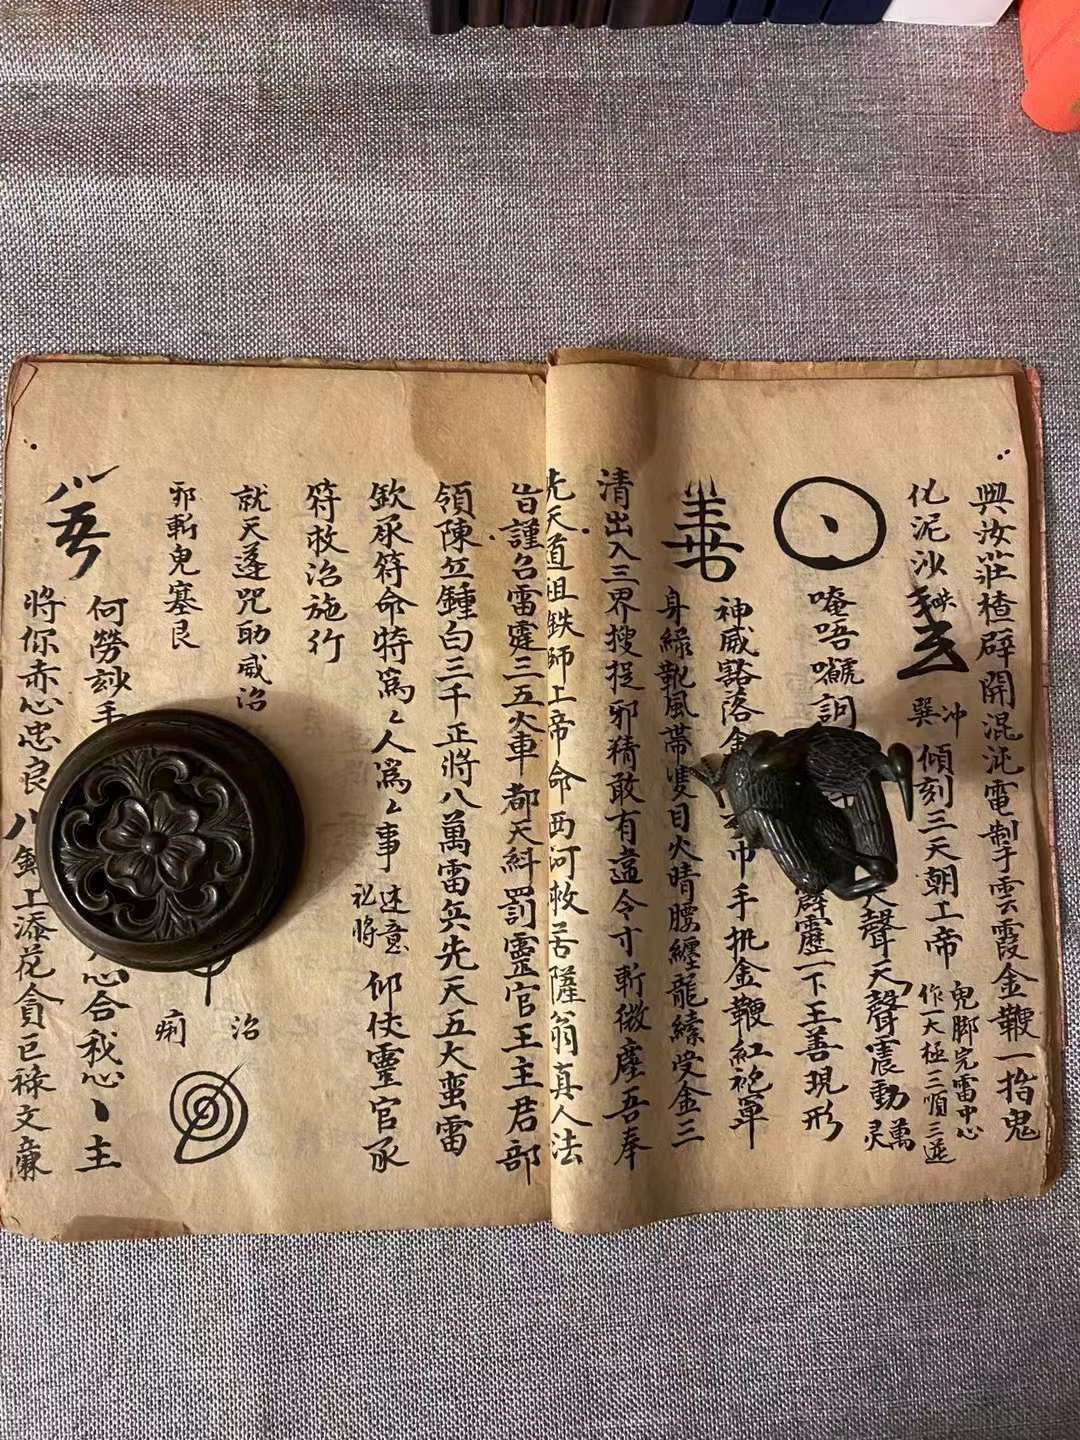 興汝莊楂辟開混沌電掣雲霞金鞭一指鬼
化泥沙
巽冲
傾刻三天朝上帝
鬼脚完雷中心
作一大極三順三逆
唵唔嚬詞
大聲天聲震動萬灵
霹靂一下王善現形
神威豁落金
巾手執金鞭紅袍罩
身綠靴風帶雙目火睛腰纏龍縤受金三
清出入三界搜捉邪精敢有違令寸斬微塵吾奉
先天道祖鉄師上帝命西河救苦薩翁真人法
旨謹召雷霆三五火車都天糾罰靈官王主君部
領陳苙鍾白三千正將八萬雷兵先天五大蛮雷
欽承符命特為厶人為厶事
述意
訖將
仰仗靈官承
符救治施行
就天蓬咒助威治
邪斬鬼塞艮
治
痢
何勞
手
心合我心丶主
將你赤心忠良
上添花貪巨祿文廉